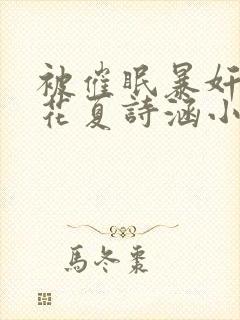 被催眠暴奸
花夏詩涵小
馬冬棗